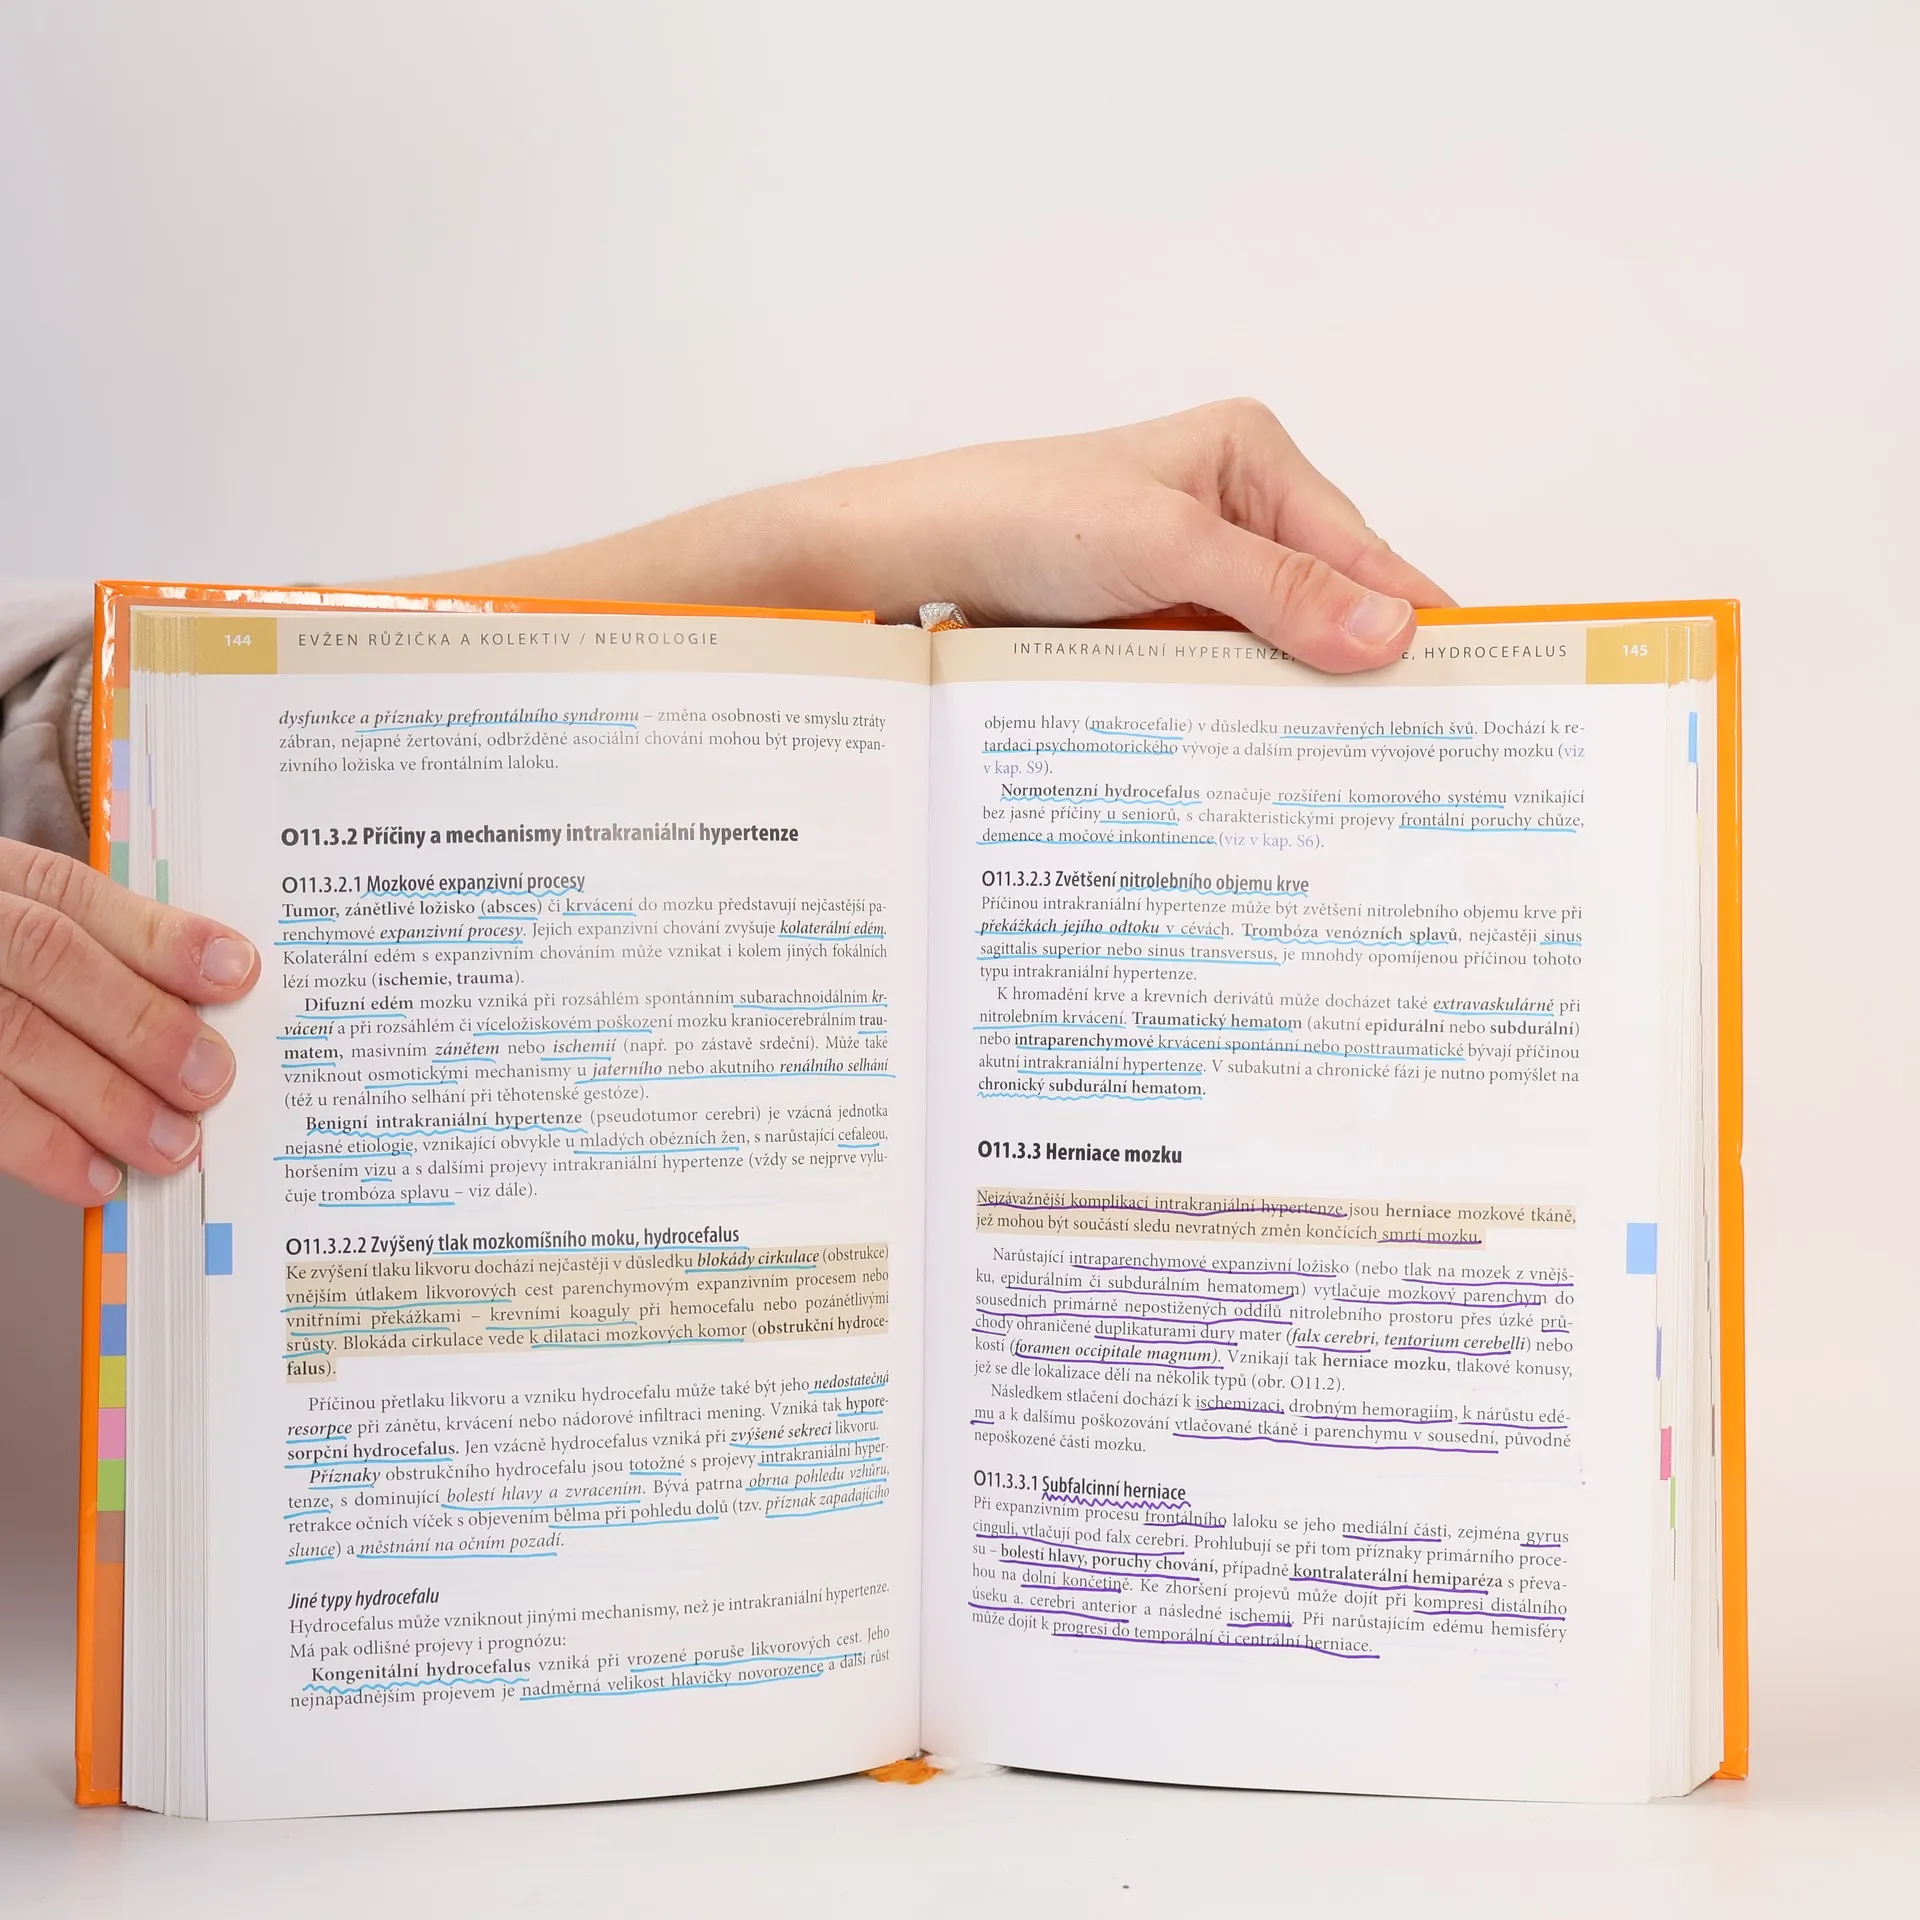 144
EVŽEN RŮŽIČKA A KOLEKTIV / NEUROLOGIE
dysfunkce a příznaky prefrontálního syndromu – změna osobnosti ve smyslu ztráty
zábran, nejapné žertování, odbržděné asociální chování mohou být projevy expan-
zivního ložiska ve frontálním laloku.
O11.3.2 Příčiny a mechanismy intrakraniální hypertenze
O11.3.2.1 Mozkové expanzivní procesy
Tumor, zánětlivé ložisko (absces) či krvácení do mozku představují nejčastější pa-
renchymové expanzivní procesy. Jejich expanzivní chování zvyšuje kolaterální edém.
Kolaterální edém s expanzivním chováním může vznikat i kolem jiných fokálních
lézí mozku (ischemie, trauma).
Difuzní edém mozku vzniká při rozsáhlém spontánním subarachnoidálním kr-
vácení a při rozsáhlém či víceložiskovém poškození mozku kraniocerebrálním trau-
matem, masivním zánětem nebo ischemií (např. po zástavě srdeční). Může také
vzniknout osmotickými mechanismy u jaterního nebo akutního renálního selhání
(též u renálního selhání při těhotenské gestóze).
Benigní intrakraniální hypertenze (pseudotumor cerebri) je vzácná jednotka
nejasné etiologie, vznikající obvykle u mladých obézních žen, s narůstající cefaleou,
horšením vizu a s dalšími projevy intrakraniální hypertenze (vždy se nejprve vylu-
čuje trombóza splavu – viz dále).
O11.3.2.2 Zvýšený tlak mozkomíšního moku, hydrocefalus
Ke zvýšení tlaku likvoru dochází nejčastěji v důsledku blokády cirkulace (obstrukce)
vnějším útlakem likvorových cest parenchymovým expanzivním procesem nebo
vnitřními překážkami – krevními koaguly při hemocefalu nebo pozánětlivými
srůsty. Blokáda cirkulace vede k dilataci mozkových komor (obstrukční hydroce-
falus).
Příčinou přetlaku likvoru a vzniku hydrocefalu může také být jeho nedostatečná
resorpce při zánětu, krvácení nebo nádorové infiltraci mening. Vzniká tak hypore-
sorpční hydrocefalus. Jen vzácně hydrocefalus vzniká při zvýšené sekreci likvoru.
Příznaky obstrukčního hydrocefalu jsou totožné s projevy intrakraniální hyper-
tenze, s dominující bolestí hlavy a zvracením. Bývá patrna obrna pohledu vzhůru,
retrakce očních víček s objevením bělma při pohledu dolů (tzv. příznak zapadajícího
slunce) a městnání na očním pozadí.
Jiné typy hydrocefalu
Hydrocefalus může vzniknout jinými mechanismy, než je intrakraniální hypertenze.
Má pak odlišné projevy i prognózu:
Kongenitální hydrocefalus vzniká při vrozené poruše likvorových cest. Jeho
nejnápadnějším projevem je nadměrná velikost hlavičky novorozence a další růst
INTRAKRANIÁLNÍ HYPERTENZE, E, HYDROCEFALUS
145
objemu hlavy (makrocefalie) v důsledku neuzavřených lebních švů. Dochází k re-
tardaci psychomotorického vývoje a dalším projevům vývojové poruchy mozku (viz
v kap. S9).
Normotenzní hydrocefalus označuje rozšíření komorového systému vznikající
bez jasné příčiny u seniorů, s charakteristickými projevy frontální poruchy chůze,
demence a močové inkontinence (viz v kap. S6).
O11.3.2.3 Zvětšení nitrolebního objemu krve
Příčinou intrakraniální hypertenze může být zvětšení nitrolebního objemu krve při
překážkách jejího odtoku v cévách. Trombóza venózních splavů, nejčastěji sinus
sagittalis superior nebo sinus transversus, je mnohdy opomíjenou příčinou tohoto
typu intrakraniální hypertenze.
K hromadění krve a krevních derivátů může docházet také extravaskulárně při
nitrolebním krvácení. Traumatický hematom (akutní epidurální nebo subdurální)
nebo intraparenchymové krvácení spontánní nebo posttraumatické bývají příčinou
akutní intrakraniální hypertenze. V subakutní a chronické fázi je nutno pomýšlet na
chronický subdurální hematom.
O11.3.3 Herniace mozku
Nejzávažnější komplikací intrakraniální hypertenze jsou herniace mozkové tkáně,
jež mohou být součástí sledu nevratných změn končících smrtí mozku.
Narůstající intraparenchymové expanzivní ložisko (nebo tlak na mozek z vnějš-
ku, epidurálním či subdurálním hematomem) vytlačuje mozkový parenchym do
sousedních primárně nepostižených oddílů nitrolebního prostoru přes úzké prů-
chody ohraničené duplikaturami dury mater (falx cerebri, tentorium cerebelli) nebo
kostí (foramen occipitale magnum). Vznikají tak herniace mozku, tlakové konusy,
jež se dle lokalizace dělí na několik typů (obr. O11.2).
Následkem stlačení dochází k ischemizaci, drobným hemoragiím, k nárůstu edé-
mu a k dalšímu poškozování vtlačované tkáně i parenchymu v sousední, původně
nepoškozené části mozku.
O11.3.3.1 Subfalcinní herniace
Při expanzivním procesu frontálního laloku se jeho mediální části, zejména gyrus
cinguli, vtlačují pod falx cerebri. Prohlubují se při tom příznaky primárního proce-
su – bolestí hlavy, poruchy chování, případně kontralaterální hemiparéza s převa-
hou na dolní končetině. Ke zhoršení projevů může dojít při kompresi distálního
úseku a. cerebri anterior a následné ischemii. Při narůstajícím edému hemisféry
může dojít k progresi do temporální či centrální herniace.